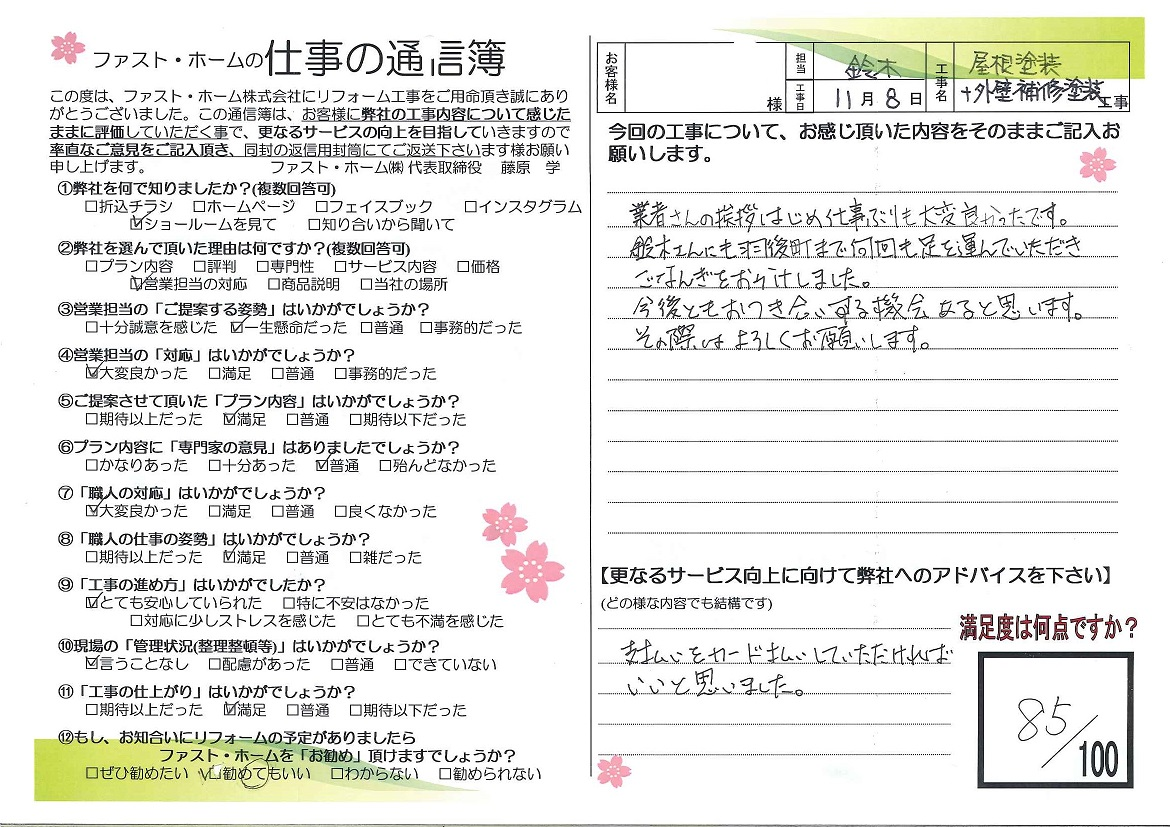 ファスト・ホームの仕事の通信簿
この度は、ファスト・ホーム株式会社にリフォーム工事をご用命頂き誠にあり
がとうございました。この通信簿は、お客様に弊社の工事内容について感じた
ままに評価していただく事で、更なるサービスの向上を目指していきますので
率直なご意見をご記入頂き、同封の返信用封筒にてご返送下さいます様お願い
申し上げます。 ファスト・ホーム㈱ 代表取締役 藤原 学
①弊社を何で知りましたか?(複数回答可)
□折込チラシ □ホームページ □フェイスブック □インスタグラム
☑ショールームを見て □知り合いから聞いて
②弊社を選んで頂いた理由は何ですか?(複数回答可)
□プラン内容 □評判 □専門性 □サービス内容 □価格
☑営業担当の対応 □商品説明 □当社の場所
③営業担当の「ご提案する姿勢」はいかがでしょうか?
□十分誠意を感じた ☑一生懸命だった □普通 □事務的だった
④営業担当の「対応」はいかがでしょうか?
☑大変良かった □満足 □普通 □事務的だった
⑤ご提案させて頂いた「プラン内容」はいかがでしょうか?
□期待以上だった ☑満足 □普通 □期待以下だった
⑥プラン内容に「専門家の意見」はありましたでしょうか?
□かなりあった □十分あった ☑普通 □殆んどなかった
⑦「職人の対応」はいかがでしょうか?
☑大変良かった □満足 □普通 □良くなかった
⑧「職人の仕事の姿勢」はいかがでしょうか?
□期待以上だった ☑満足 □普通 □雑だった
⑨「工事の進め方」はいかがでしたか?
☑とても安心していられた □特に不安はなかった
□対応に少しストレスを感じた □とても不満を感じた
⑩現場の「管理状況(整理整頓等)」はいかがでしょうか?
☑言うことなし □配慮があった □普通 □できていない
⑪「工事の仕上がり」はいかがでしょうか?
□期待以上だった ☑満足 □普通 □期待以下だった
⑫もし、お知合いにリフォームの予定がありましたら
ファスト・ホームを「お勧め」頂けますでしょうか?
□ぜひ勧めたい ☑勧めてもいい □わからない □勧められない
お客様名 様 担当 鈴木 工事日 11月8日 工事名 屋根塗装
+外壁補修塗装工事
今回の工事について、お感じ頂いた内容をそのままご記入お
願いします。
業者さんの挨拶はじめ仕事ぶりも大変良かったです。
鈴木さんにも羽後町まで何回も足を運んでいただき
ごなんぎをおかけしました。
今後ともおつき合いする機会あると思います。
その際はよろしくお願いします。
【更なるサービス向上に向けて弊社へのアドバイスを下さい】
(どの様な内容でも結構です)
支払いをカード払いしていただければ
いいと思いました。
満足度は何点ですか?
85/100